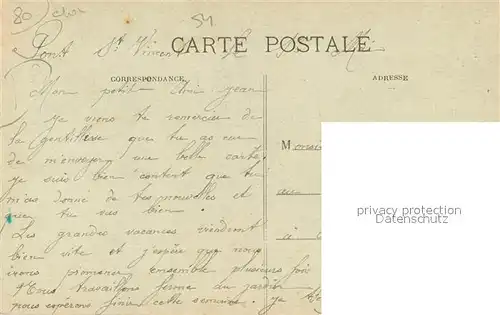 80
54
Pont St Vincent le
CARTE POSTALE
CORRESPONDANCE
ADRESSE
Mon petit ami jean
je viens te remercier de
la gentillesse que tu as eue
de m'envoyer une belle carte
je suis bien content que tu
m'as donné de tes nouvelles et
que tu vas bien.
Les grandes vacances viendront
bien vite et j'espère que nous
irons promener ensemble plusieurs fois
Nous travaillons ferme au jardin
nous espérons finir cette semaine. je
Monsie
au
à
privacy protection
Ansichtskarten-Center